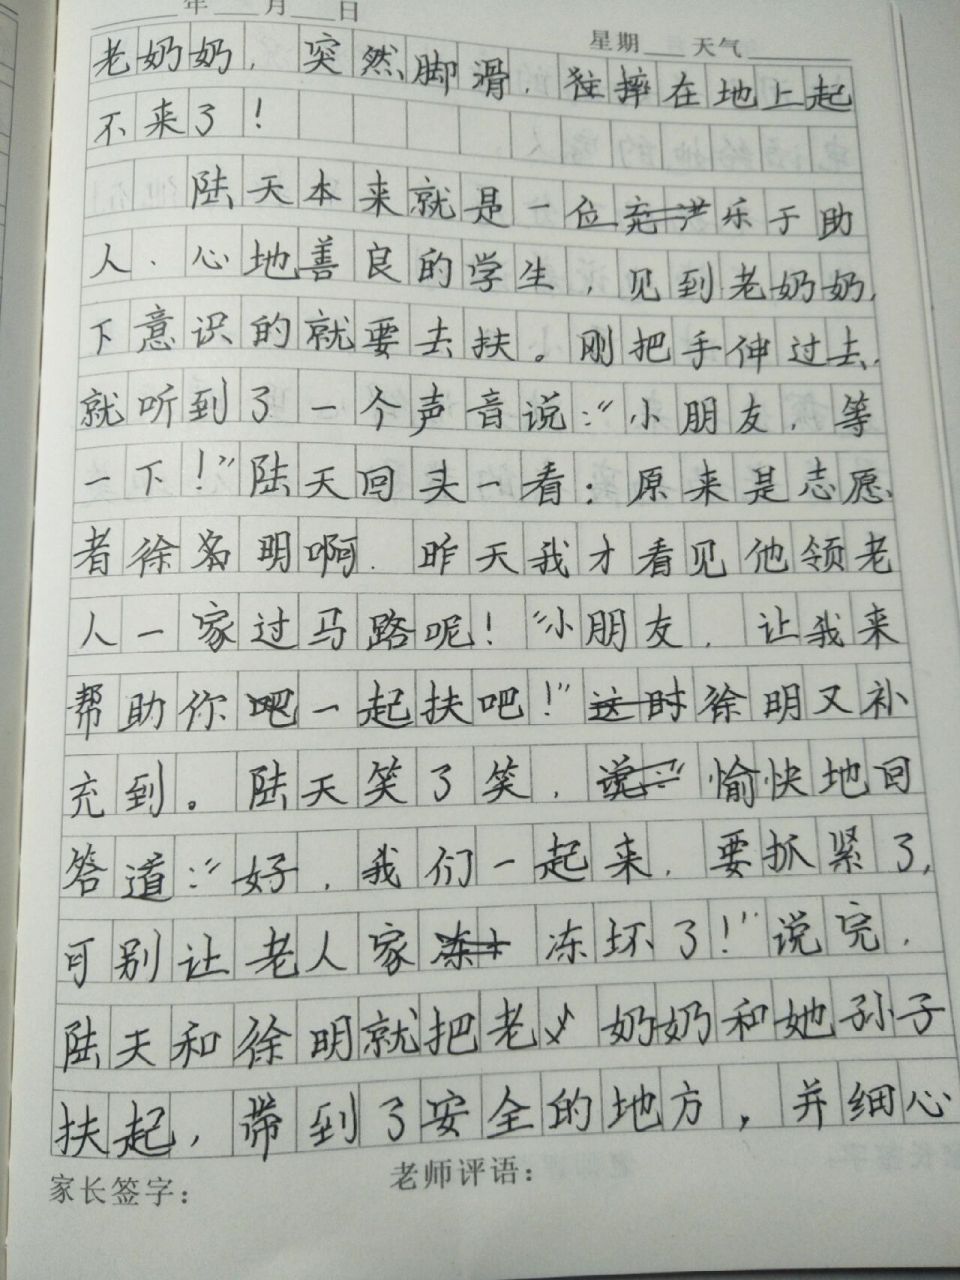 年 月 日
星期 天气
老奶奶，突然脚滑，摔在地上起
不来了！
陆天本来就是一位充满乐于助
人、心地善良的学生，见到老奶奶，
下意识的就要去扶。刚把手伸过去，
就听到了一个声音说：“小朋友，等
一下！”陆天回头一看：原来是志愿
者徐明啊，昨天我才看见他领老
人一家过马路呢！“小朋友，让我来
帮助你吧一起扶吧！”这时徐明又补
充到。陆天笑了笑，说：“愉快地回
答道：“好，我们一起来，要抓紧了，
可别让老人家冻冻坏了！”说完，
陆天和徐明就把老奶奶和她孙子
扶起，带到了安全的地方，并细心
家长签字： 老师评语：